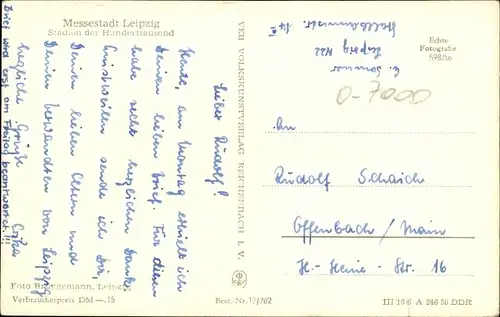 Messestadt Leipzig
Stadion der Hunderttausend
Lieber Rudolf!
Heute, am Montag erhielt ich
Deinen lieben Brief. Für diesen
habe recht herzlichen Dank.
Einstweilen sende ich Dir,
Deinen lieben Eltern und
Deinen Verwandten von Leipzig
herzliche Grüße
Brief wird erst am Freitag beantwortet!!!
Foto Bruggemann, Leipzig
Verbraucherpreis DM —.15
VEB VOLKSKUNSTVERLAG REICHENBACH I. V.
Best.-Nr. 151/02
Leipzig N22
Echte
Fotografie
O-7000
An
Rudolf Schaich
Offenbach/Main
H.-Heine-Str. 16
III 18 6 A 246 56 DDR